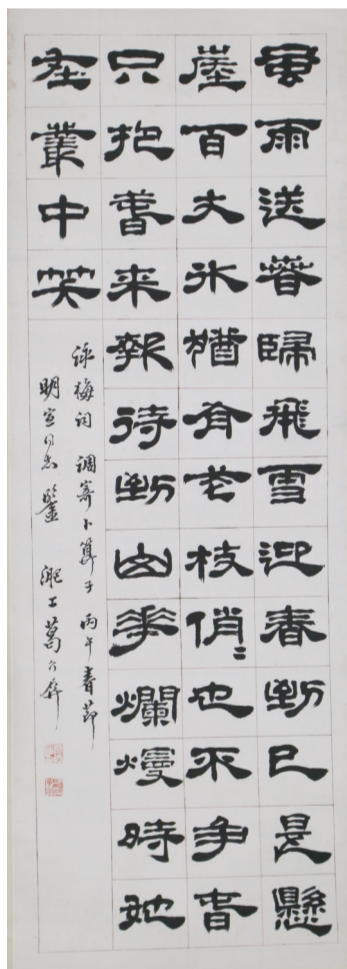 風雨送春歸飛雪迎春到已是懸
崖百丈冰猶有花枝俏〻也不争春
只把春来報待到山花爛熳時她
在叢中笑
詠梅词 调寄卜算子 丙午春节
明宣同志鑒 淝上葛介屏